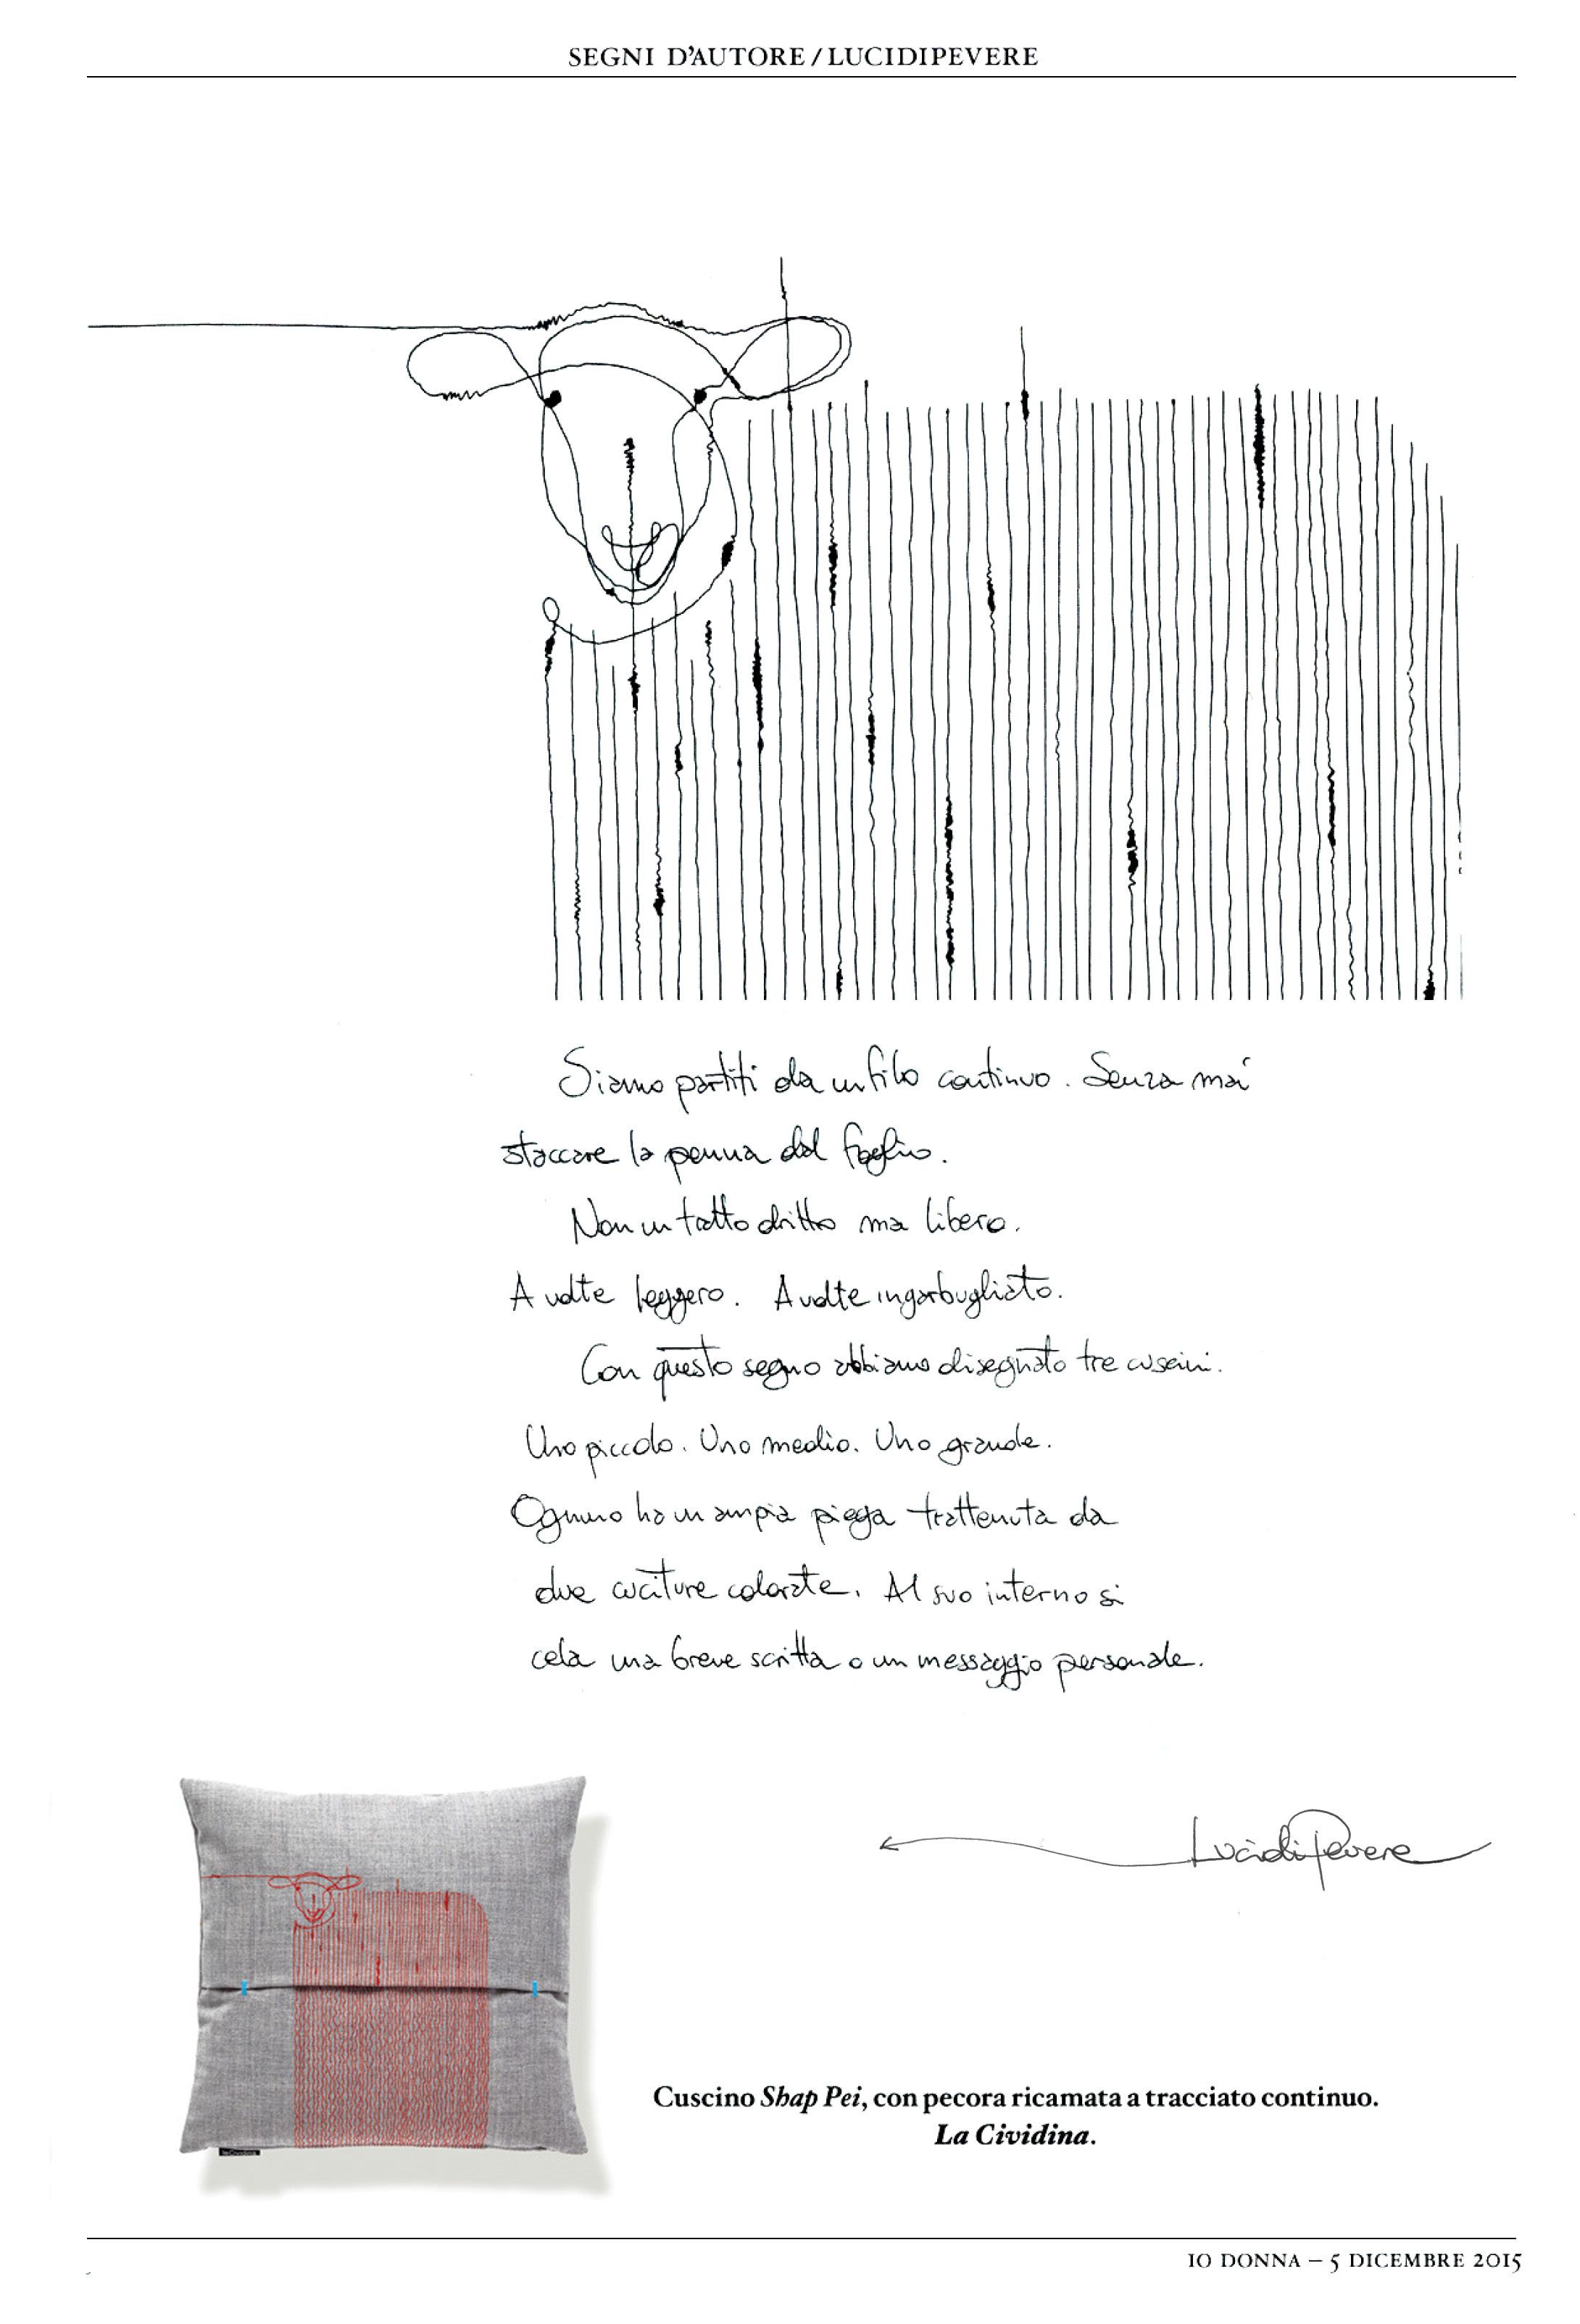 SEGNI D'AUTORE/LUCIDIPEVERE
Siamo partiti da un filo continuo. Senza mai
staccare la penna dal foglio.
Non un tratto dritto ma libero.
A volte leggero. A volte ingarbugliato.
Con questo segno abbiamo disegnato tre cuscini.
Uno piccolo. Uno medio. Uno grande.
Ognuno ha un ampia piega trattenuta da
due cuciture colorate. Al suo interno si
cela una breve scritta o un messaggio personale.
LucidiPevere
Cuscino Shap Pei, con pecora ricamata a tracciato continuo.
La Cividina.
IO DONNA – 5 DICEMBRE 2015